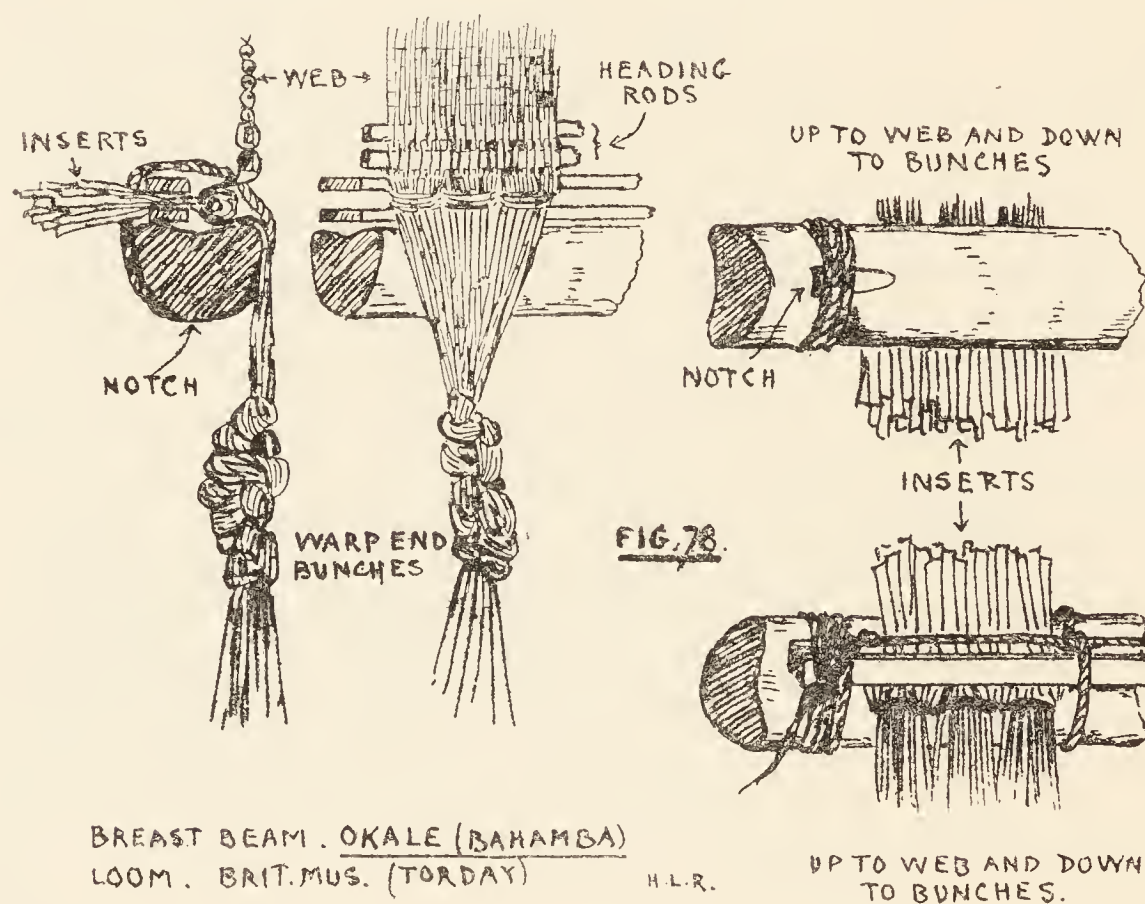 ←WEB→
HEADING
RODS
INSERTS
UP TO WEB AND DOWN
TO BUNCHES
NOTCH
NOTCH
INSERTS
WARP END
BUNCHES
FIG. 78.
BREAST BEAM. OKALE (BAHAMBA)
LOOM. BRIT. MUS. (TORDAY)
H.L.R.
UP TO WEB AND DOWN
TO BUNCHES.